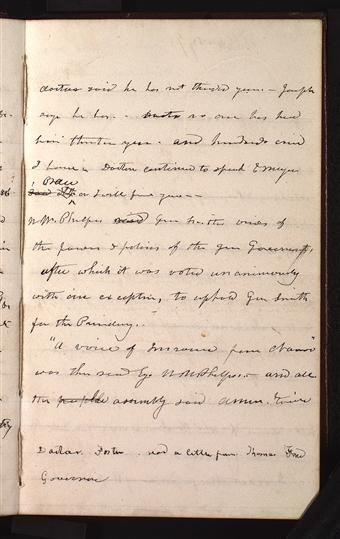 doctor said he has not thirded years — Joseph
says he has. — no one has had
him thirteen years. and hundreds cried
I have in Doctor continued to speak &
Peace or I will fine you —
W W. Phelps read Gen Smiths views of
the powers & policies of the gen Government,
after which it was voted unanimously
with one exception, to uphold Gen Smith
for the Presidency. —
"A voice of Innocence from Nauvoo"
was then read by W W Phelps. — and all
the people assembly said amen. twice
Doctor Foster read a letter from Thomas Ford
Governor